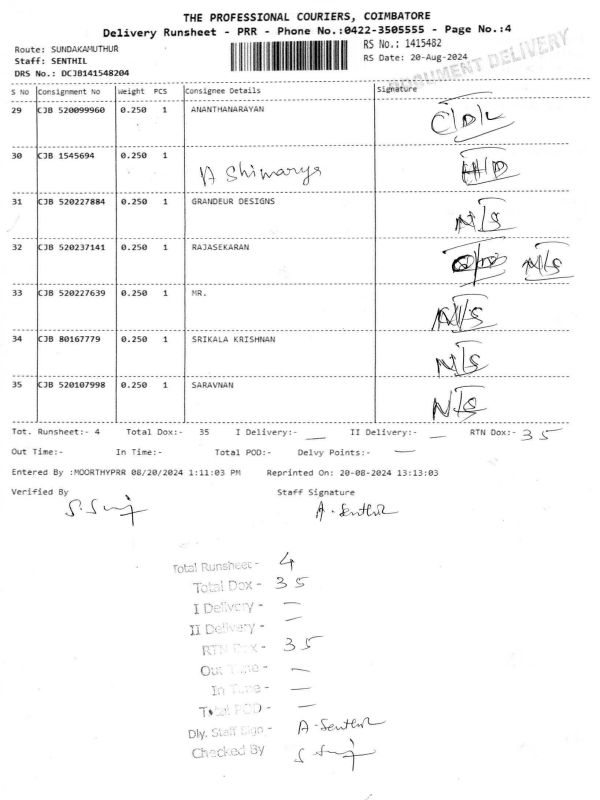 THE PROFESSIONAL COURIERS, COIMBATORE
Delivery Runsheet - PRR - Phone No.:0422-3505555 - Page No.:4
Route: SUNDAKAMUTHUR
RS No.: 1415482
Staff: SENTHIL
RS Date: 20-Aug-2024
DRS No.: DCJB141548204
DOCUMENT DELIVERY
S No Consignment No Weight PCS Consignee Details Signature
29 CJB 520099960 0.250 1 ANANTHANARAYAN C/D/L
30 CJB 1545694 0.250 1 A Shimarys
31 CJB 520227884 0.250 1 GRANDEUR DESIGNS N/S
32 CJB 520237141 0.250 1 RAJASEKARAN N/S
33 CJB 520227639 0.250 1 MR. N/S
34 CJB 80167779 0.250 1 SRIKALA KRISHNAN N/S
35 CJB 520107998 0.250 1 SARAVNAN N/S
Tot. Runsheet:- 4 Total Dox:- 35 I Delivery:- — II Delivery:- — RTN Dox:- 35
Out Time:- In Time:- Total POD:- Delvy Points:- —
Entered By :MOORTHYPRR 08/20/2024 1:11:03 PM Reprinted On: 20-08-2024 13:13:03
Verified By Staff Signature
A. Senthil
Total Runsheet - 4
Total Dox - 35
I Delivery - —
II Delivery - —
RTN Dox - 35
Out Time - —
In Time - —
Total POD - —
Dly. Staff Sign - A. Senthil
Checked By